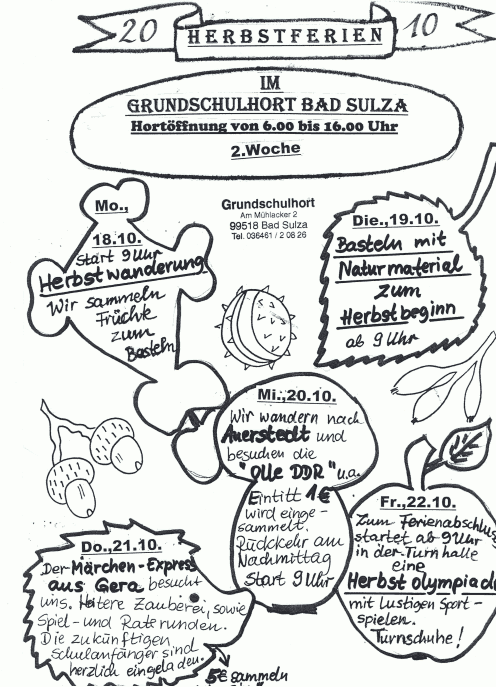 20 HERBSTFERIEN 10
IM
GRUNDSCHULHORT BAD SULZA
Hortöffnung von 6.00 bis 16.00 Uhr
2.Woche
Grundschulhort
Am Mühlacker 2
99518 Bad Sulza
Tel. 036461 / 2 08 26
Mo.,
18.10.
Start 9 Uhr
Herbstwanderung
Wir sammeln
Früchte
zum
Basteln
Die.,19.10.
Basteln mit
Naturmaterial
zum
Herbstbeginn
ab 9 Uhr
Mi.,20.10.
Wir wandern nach
Auerstedt und
besuchen die
"Olle DDR" u.a.
Eintitt 1€
wird einge-
sammelt.
Rückkehr am
Nachmittag
Start 9 Uhr
Do.,21.10.
Der Märchen-Express
aus Gera besucht
uns. Heitere Zauberei, sowie
Spiel- und Raterunden.
Die zukünftigen
Schulanfänger sind
herzlich eingeladen.
5€ sammeln
Fr.,22.10.
Zum Ferienabschluß
startet ab 9 Uhr
in der Turnhalle
eine
Herbstolympiade
mit lustigen Sport-
spielen.
Turnschuhe!